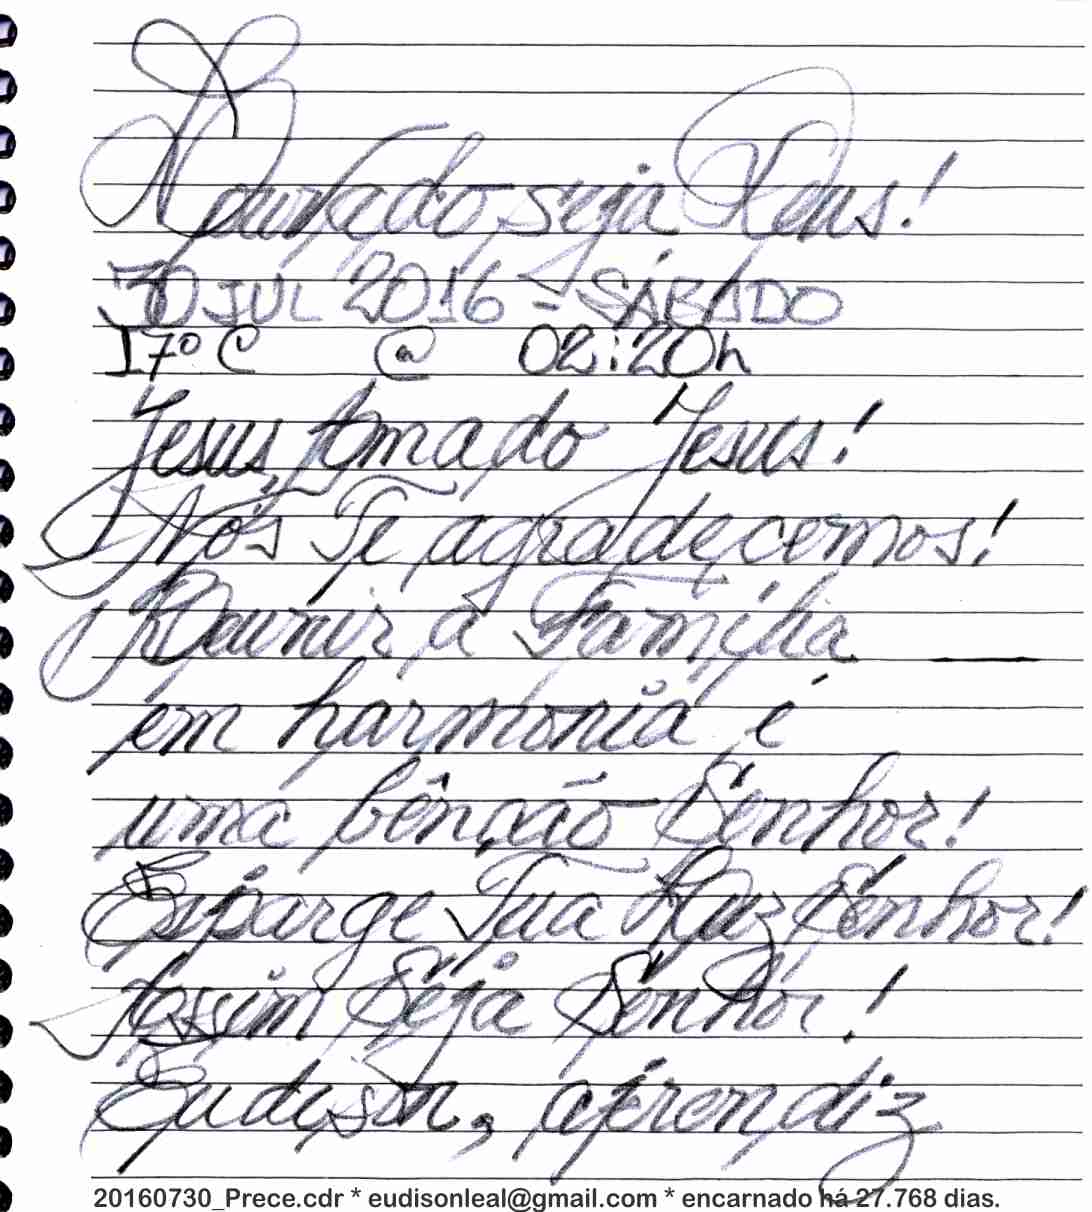 Louvado seja Deus!
30 JUL 2016 - SÁBADO
17º C @ 02:20h
Jesus, Amado Jesus!
Nós Te agradecemos!
Reunir a Família
em harmonia é
uma bênção Senhor!
Esparge Tua Luz Senhor!
Assim Seja Senhor!
Eudison, aprendiz
20160730_Prece.cdr * eudisonleal@gmail.com * encarnado há 27.768 dias.